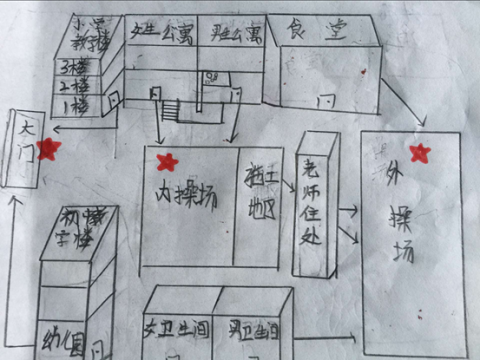 小学
教学楼
3楼
2楼
1楼
女生公寓
男生公寓
食堂
大门
内操场
施工
地区
老师住处
外操场
初教
学楼
幼儿园
女卫生间
男卫生间